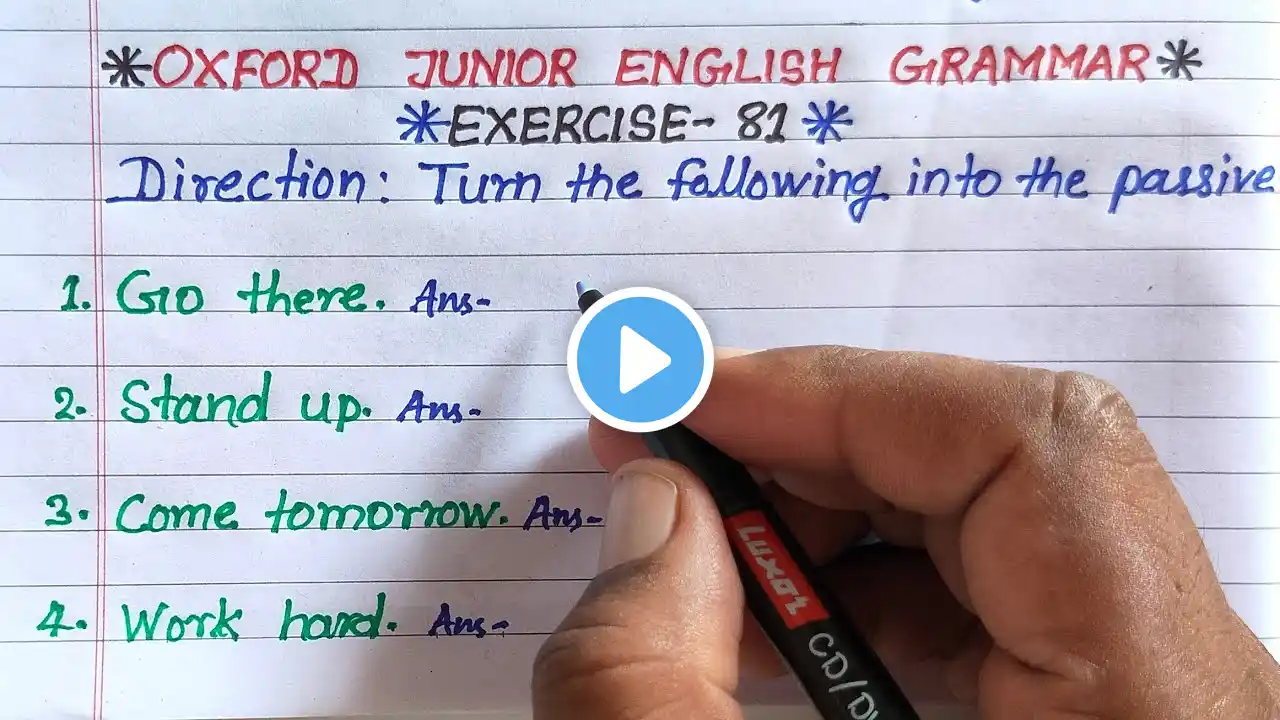 *OXFORD JUNIOR ENGLISH GRAMMAR*
*EXERCISE- 81*
Direction: Turn the following into the passive
1. Go there. Ans-
2. Stand up. Ans-
3. Come tomorrow. Ans-
4. Work hard. Ans-
Luxor
CD/DV